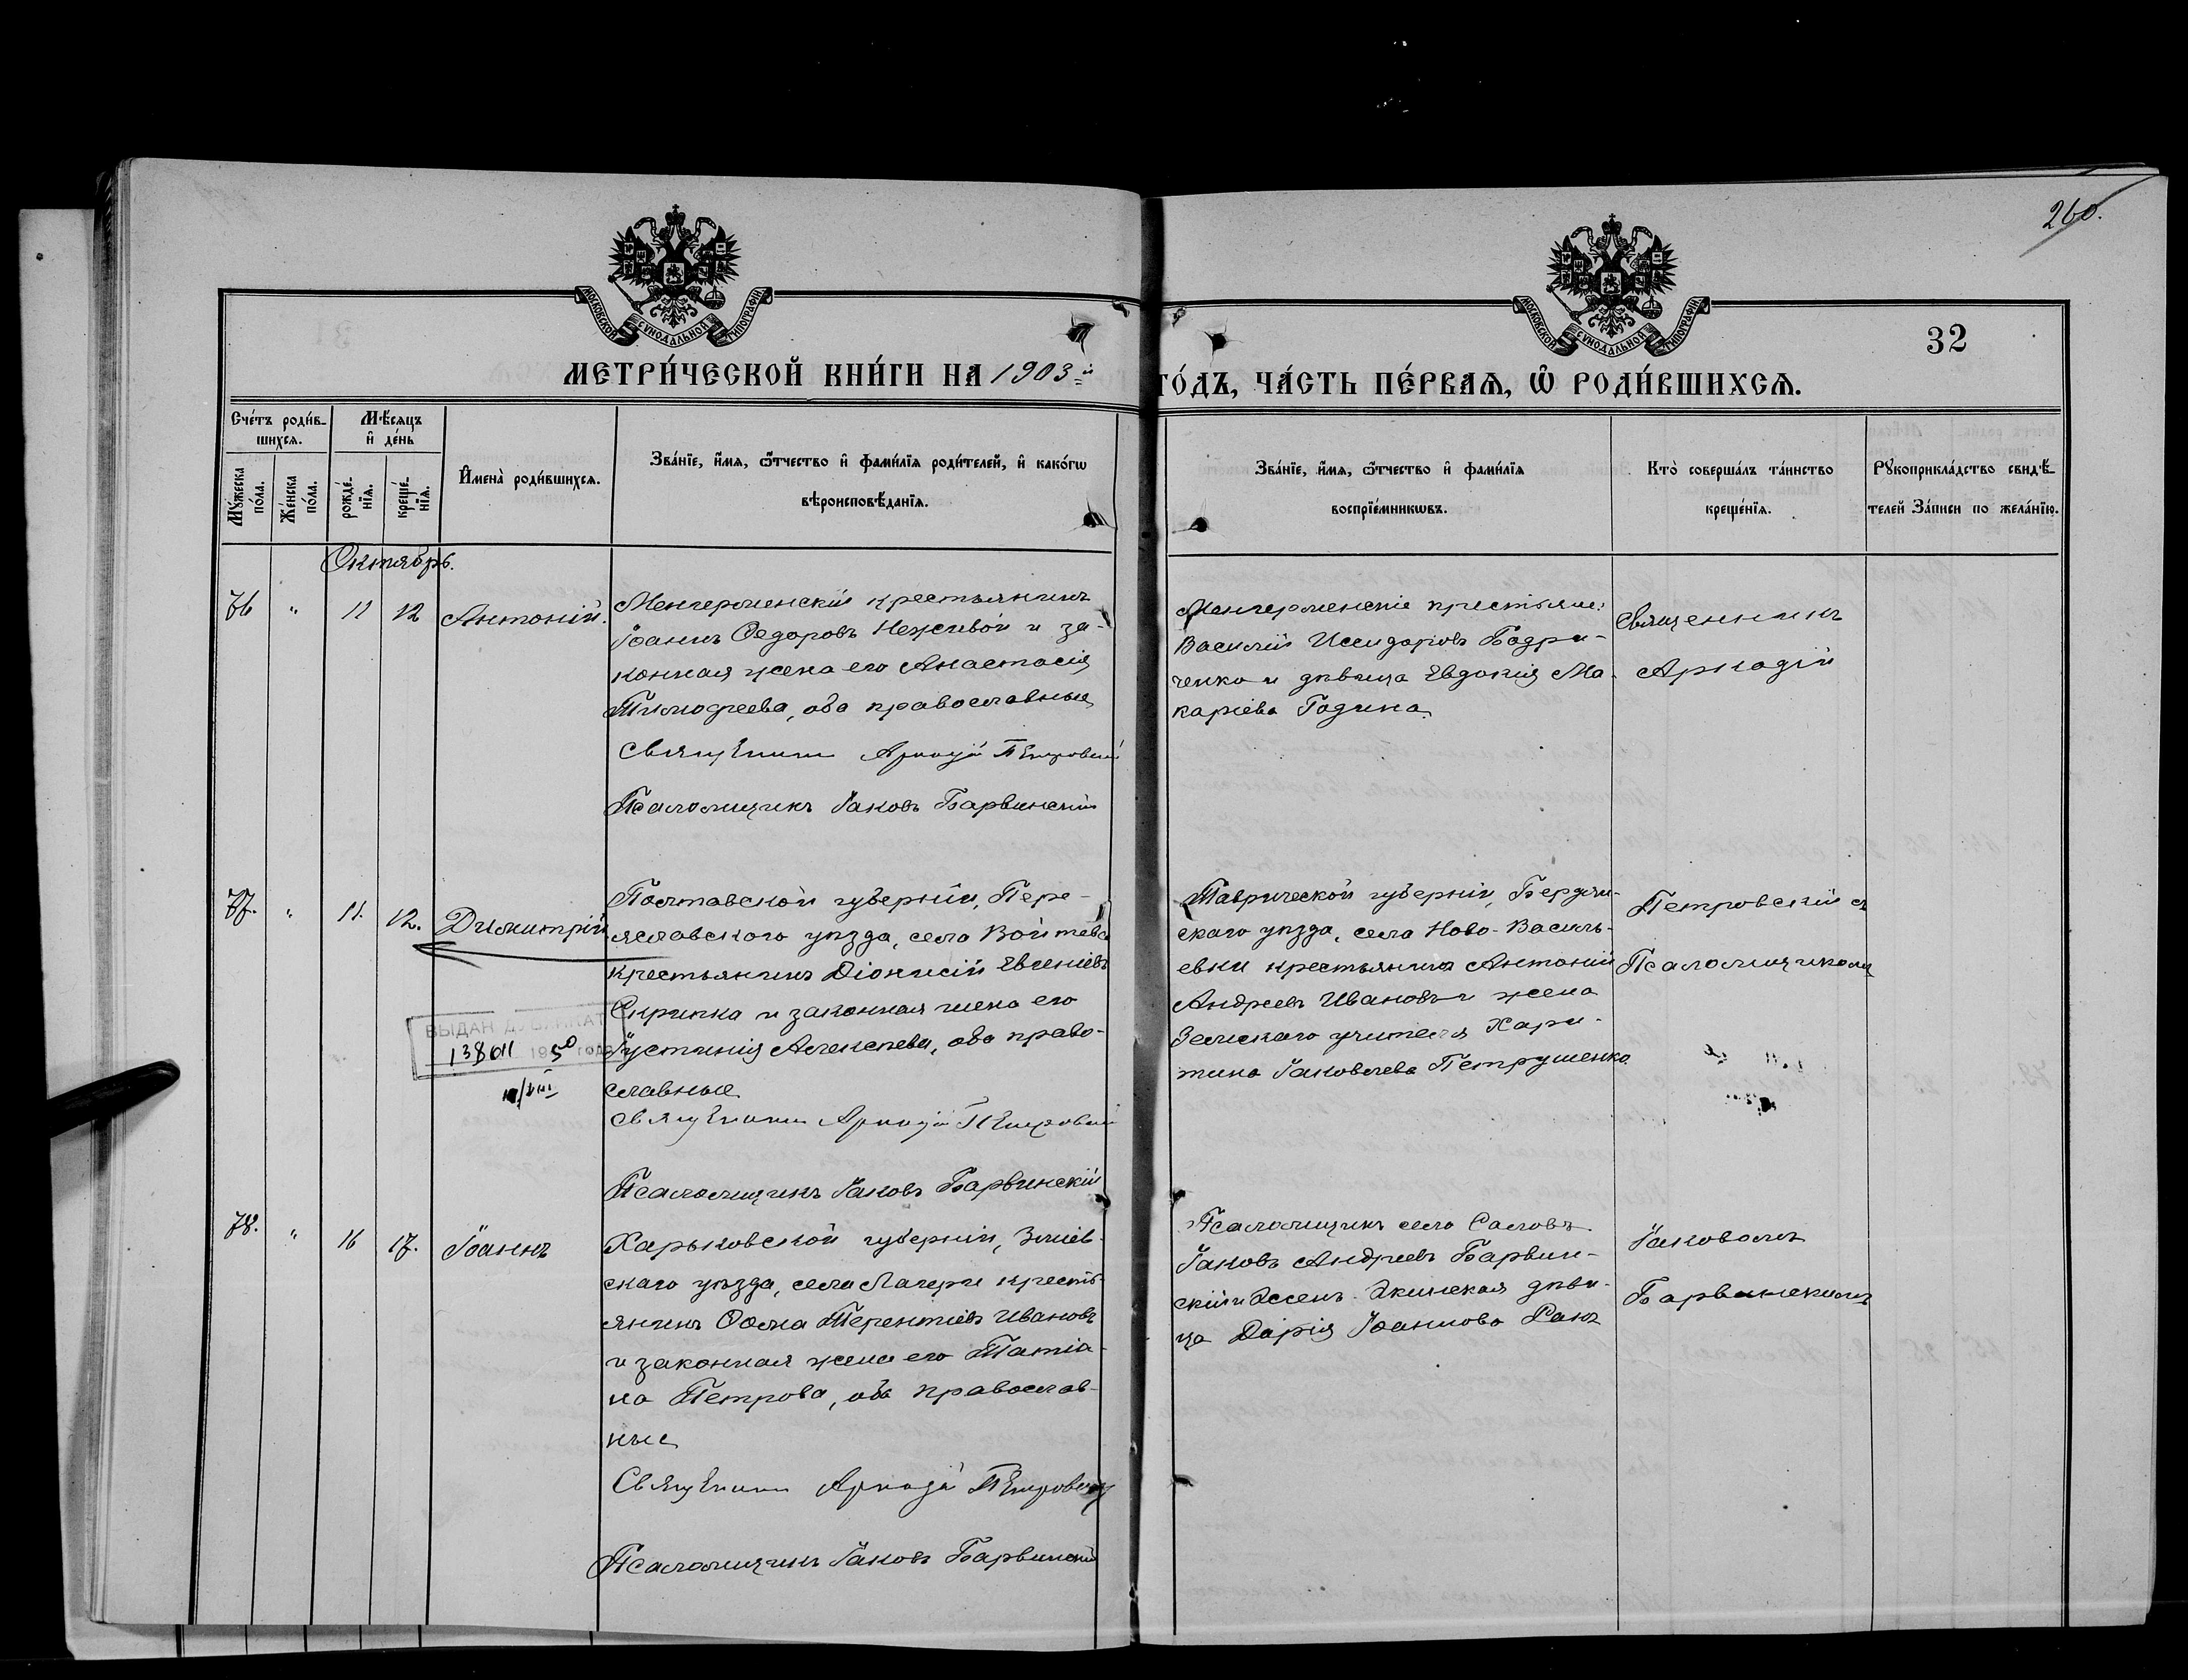 260.
МОСКОВСКОЙ СУНОДАЛЬНОЙ ТИПОГРАФІИ
МОСКОВСКОЙ СУНОДАЛЬНОЙ ТИПОГРАФІИ
32
МЕТРИ́ЧЕСКОЙ КНИ́ГИ НА 1903-й
ГО́ДЪ, ЧА́СТЬ ПЕ́РВАѦ, Ѿ РОДИ́ВШИХСѦ.
Сче́тъ роди́в-
шихсѧ.
Мѣ́сяцъ
и҆ де́нь
Мꙋ́жеска по́ла.
Же́нска по́ла.
рожде́-
нїѧ.
креще́-
нїѧ.
И҆мена̀ роди́вшихсѧ.
Зва́нїе, и҆́мѧ, ѻ҆́тчество и҆ фами́лїѧ роди́телей, и҆ како́гѡ
вѣроисповѣ́данїѧ.
Зва́нїе, и҆́мѧ, ѻ҆́тчество и҆ фами́лїѧ
воспрїе́мникѡвъ.
Кто̀ соверша́лъ та́инство
креще́нїѧ.
Рꙋкоприкла́дство свидѣ́-
телей За́писи по жела́нїю.
Октябрь.
76 " 11 12 Антоній.
Менгерменскій крестьянинъ
Іоаннъ Ѳедоровъ Неживой и за-
конная жена его Анастасія
Тимоѳеева, оба православные
Священникъ Аркадій Петровскій
Псаломщикъ Іаковъ Барвинскій
Менгерменскіе крестьяне:
Василій Исидоровъ Бодри-
ченко и дѣвица Евдокія Ма-
каріева Година.
Священникъ
Аркадій
77. " 11. 12. Димитрій
Полтавской губерніи, Пере-
яславского уѣзда, села Войтова
крестьянинъ Діонисій Евгеніевъ
Скрипка и законная жена его
Іустинія Алексѣева, оба право-
славные
Священникъ Аркадій Петровскій
Псаломщикъ Іаковъ Барвинскій
ВЫДАН ДУБЛИКАТ
138011 1950 года
/VIII
Таврической губерніи, Бердян-
скаго уѣзда, села Ново-Василь-
евки крестьянинъ Антоній
Андреевъ Ивановъ и жена
Земскаго учителя Хари-
тина Іаковлева Петрушенко.
Петровскій съ
Псаломщикомъ
78. " 16 17. Іоаннъ
Харьковской губерніи, Зміев-
скаго уѣзда, села Лагери кресть-
янинъ Ѳома Терентіевъ Ивановъ
и законная жена его Татіа-
на Петрова, оба православ-
ные
Священникъ Аркадій Петровскій
Псаломщикъ Іаковъ Барвинскій
Псаломщикъ села Саловъ
Іаковъ Андреевъ Барвин-
скій и дѣви-
ца Дарія Іоаннова Ранъ
Іаковомъ
Барвинскимъ